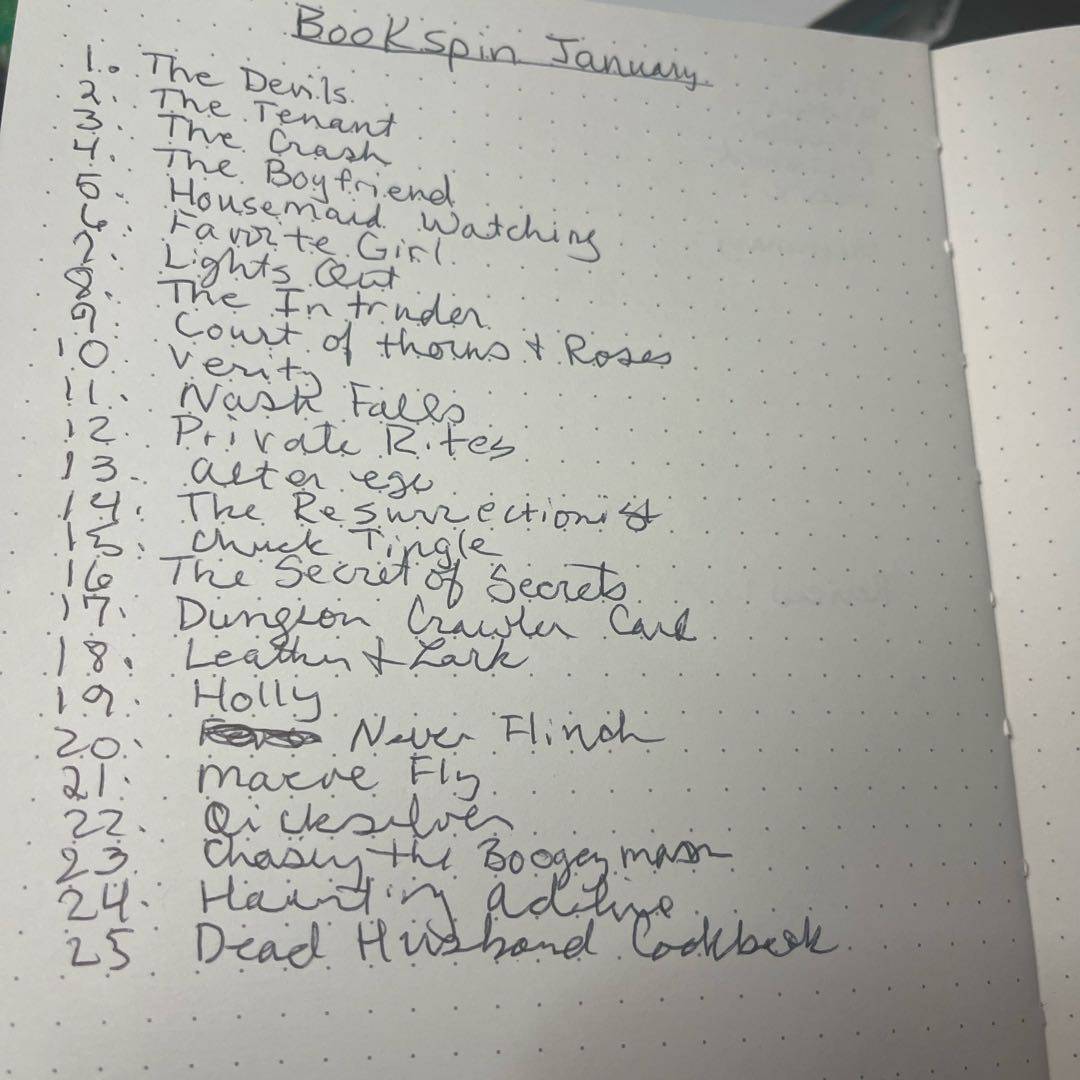 Bookspin January
1. The Devils
2. The Tenant
3. The Crash
4. The Boyfriend
5. Housemaid Watching
6. Favorite Girl
7. Lights Out
8. The Intruder
9. Court of thorns + Roses
10 Verity
11. Nash Falls
12. Private Rites
13. alter ego
14. The Resurrectionist
15. Chuck Tingle
16 The Secret of Secrets
17. Dungeon Crawler Carl
18. Leather + Lark
19. Holly
20. Never Flinch
21. maeve Fly
22. Qicksilver
23 Chasing the Boogeyman
24. Haunting adeline
25 Dead Husband Cookbook